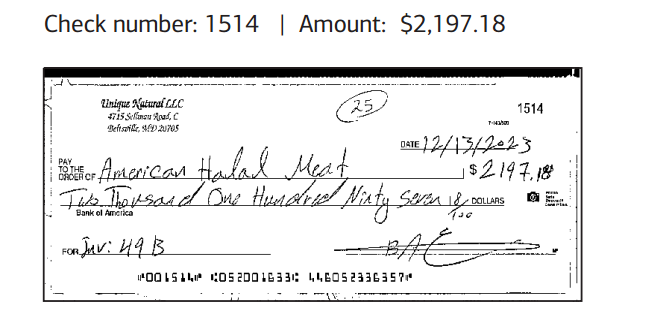 Check number: 1514 | Amount: $2,197.18
Unique Natural LLC
4715 Sellman Road, C
Beltsville, MD 20705
25
1514
7-163/520
DATE 12/13/2023
PAY TO THE ORDER OF American Halal Meat $2197.18
Two Thousand One Hundred Ninty Seven 18/100 DOLLARS
Bank of America
FOR Inv: 49 B
⑈001514⑈ ⑆052001633⑆ 446052336357⑈